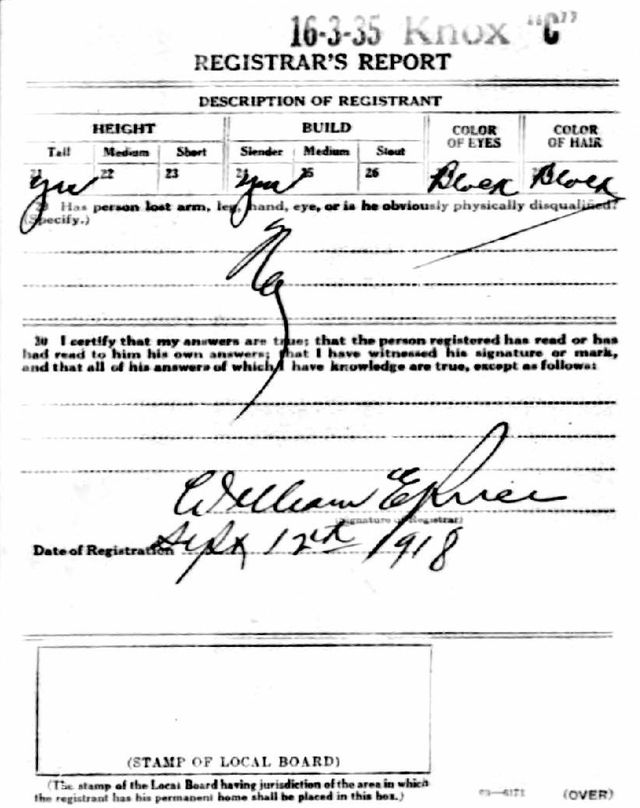 16-3-35 Knox "C"
REGISTRAR'S REPORT
DESCRIPTION OF REGISTRANT
HEIGHT BUILD COLOR OF EYES COLOR OF HAIR
Tall Medium Short Slender Medium Stout
21 22 23 24 25 26
yes yes Black Black
Has person lost arm, leg, hand, eye, or is he obviously physically disqualified?
(Specify.)
No
30 I certify that my answers are true; that the person registered has read or has
had read to him his own answers; that I have witnessed his signature or mark,
and that all of his answers of which I have knowledge are true, except as follows:
William E
(Signature of Registrar)
Date of Registration Sept 12th 1918
(STAMP OF LOCAL BOARD)
(The stamp of the Local Board having jurisdiction of the area in which
the registrant has his permanent home shall be placed in this box.)
03—6171 (OVER)